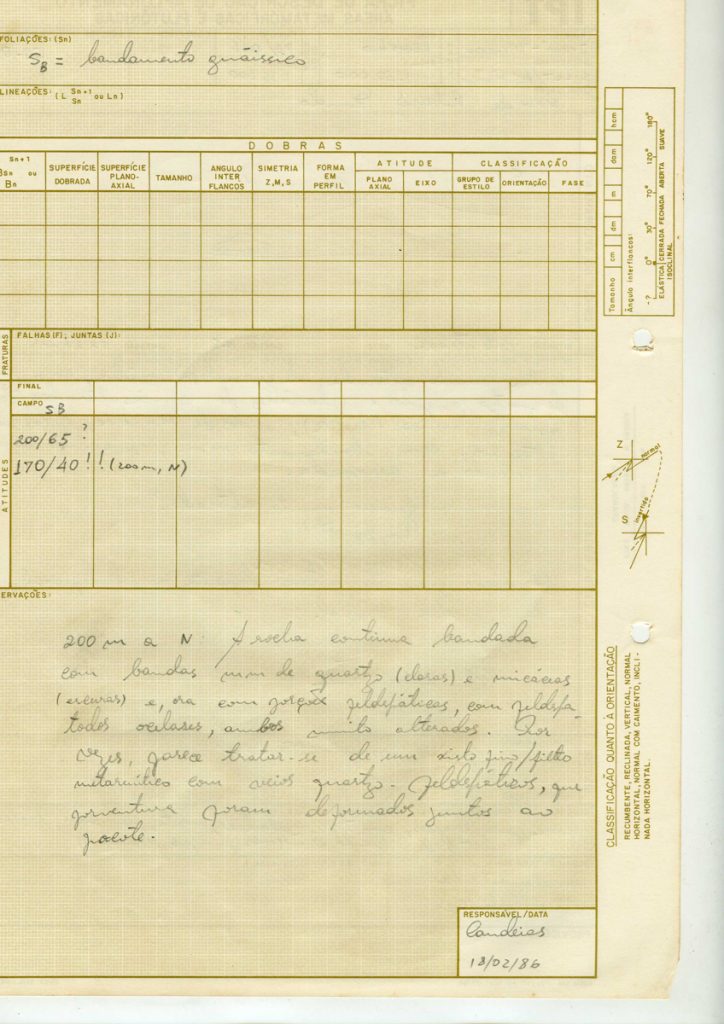 FOLIAÇÕES: (Sn)
SB = bandamento gnáissico
LINEAÇÕES: (L Sn+1 ou Ln)
Sn
DOBRAS
Sn+1
BSn ou
Bn
SUPERFÍCIE DOBRADA
SUPERFÍCIE PLANO-AXIAL
TAMANHO
ANGULO INTER FLANCOS
SIMETRIA Z,M,S
FORMA EM PERFIL
ATITUDE
PLANO AXIAL
EIXO
CLASSIFICAÇÃO
GRUPO DE ESTILO
ORIENTAÇÃO
FASE
FRATURAS
FALHAS(F); JUNTAS (J):
FINAL
CAMPO SB
ATITUDES
200/65 ?
170/40 !! (200m, N)
ERVAÇÕES:
200 m a N: A rocha continua bandada
com bandas mm de quartzo (claras) e micáceas
(escuras) e, ora com porções feldspáticas, com feldspa-
todos ocelares, ambos muito alterados. Por
vezes, parece tratar-se de um xisto fino/filito
metarenítico com veios quartzo-feldspáticos, que
porventura foram deformados juntos ao
pacote.
RESPONSÁVEL/DATA
Candeias
18/02/86
Tamanho cm dm m dam hcm
Ângulo interflancos:
-? 0° 30° 70° 120° 180°
ELÁSTICA CERRADA FECHADA ABERTA SUAVE
ISOCLINAL
Z
normal
S
invertido
CLASSIFICAÇÃO QUANTO À ORIENTAÇÃO
RECUMBENTE, RECLINADA, VERTICAL, NORMAL
HORIZONTAL, NORMAL COM CAIMENTO, INCLI-
NADA HORIZONTAL.